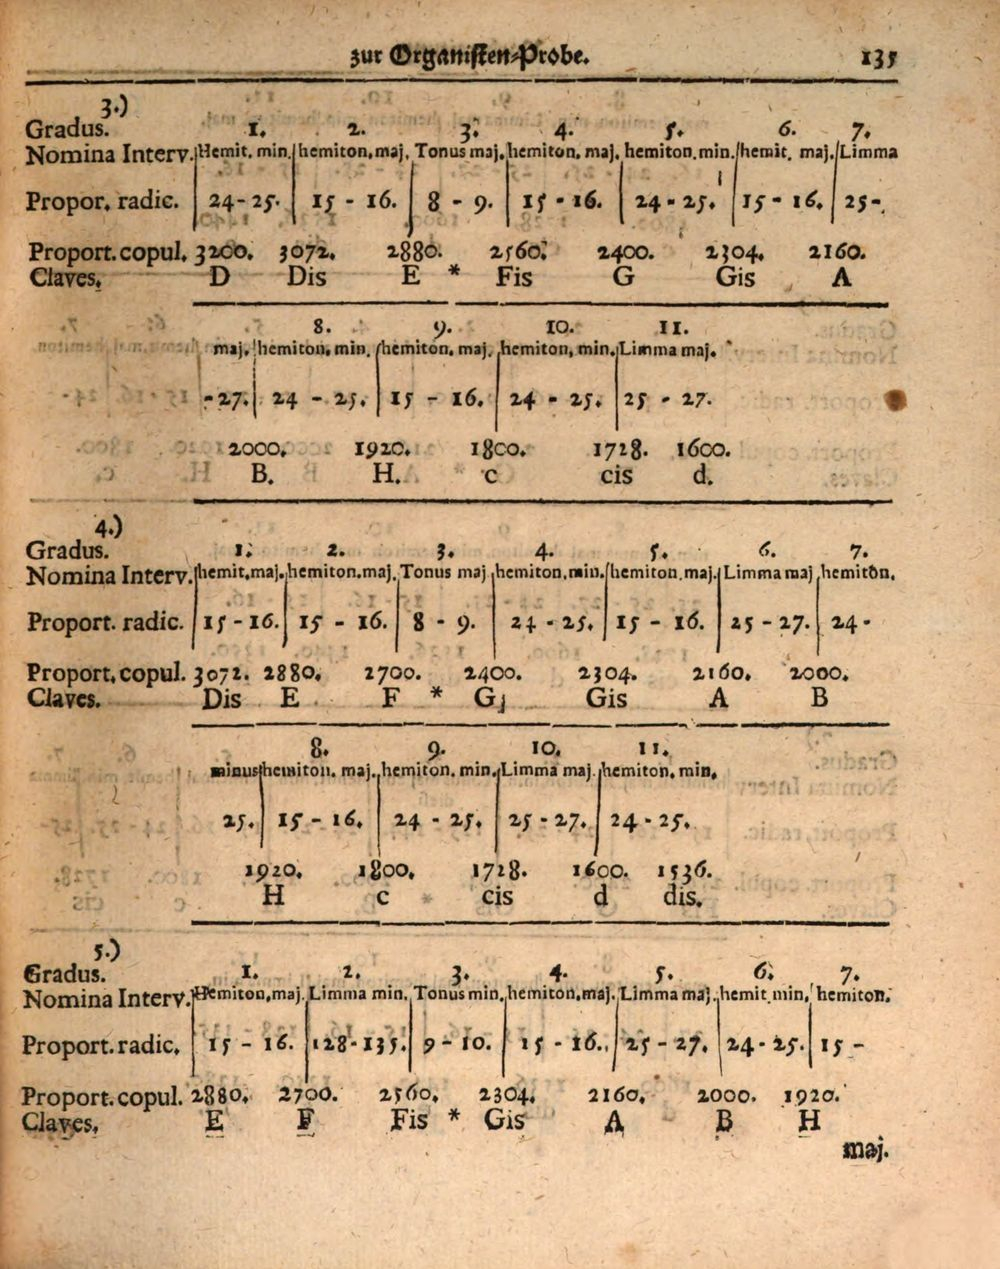 zur Organisten-Probe. 135
3.)
Gradus. 1. 2. 3. 4. 5. 6. 7.
Nomina Interv. Hemit. min. hemiton. maj. Tonus maj. hemiton. maj. hemiton. min. hemit. maj. Limma
Propor. radic. 24-25. 15 - 16. 8 - 9. 15 - 16. 24 - 25. 15 - 16. 25-
Proport. copul. 3200. 3072. 2880. 2560. 2400. 2304. 2160.
Claves. D Dis E * Fis G Gis A
8. 9. 10. 11.
maj. hemiton. min. hemiton. maj. hemiton. min. Limma maj.
-27. 24 - 25. 15 - 16. 24 - 25. 25 - 27.
2000. 1920. 1800. 1728. 1600.
B. H. c cis d.
4.)
Gradus. 1. 2. 3. 4. 5. 6. 7.
Nomina Interv. hemit. maj. hemiton. maj. Tonus maj hemiton. min. hemiton. maj. Limma maj hemiton.
Proport. radic. 15 - 16. 15 - 16. 8 - 9. 24 - 25. 15 - 16. 25 - 27. 24 -
Proport. copul. 3072. 2880. 2700. 2400. 2304. 2160. 2000.
Claves. Dis E F * G Gis A B
8. 9. 10. 11.
minus hemiton. maj. hemiton. min. Limma maj. hemiton. min.
25. 15 - 16. 24 - 25. 25 - 27. 24 - 25.
1920. 1800. 1728. 1600. 1536.
H c cis d dis.
5.)
Gradus. 1. 2. 3. 4. 5. 6. 7.
Nomina Interv. Hemiton. maj. Limma min. Tonus min. hemiton. maj. Limma maj. hemit min. hemiton.
Proport. radic. 15 - 16. 128-135. 9 - 10. 15 - 16. 25 - 27. 24 - 25. 15 -
Proport. copul. 2880. 2700. 2560. 2304. 2160. 2000. 1920.
Claves. E F Fis * Gis A B H
maj.